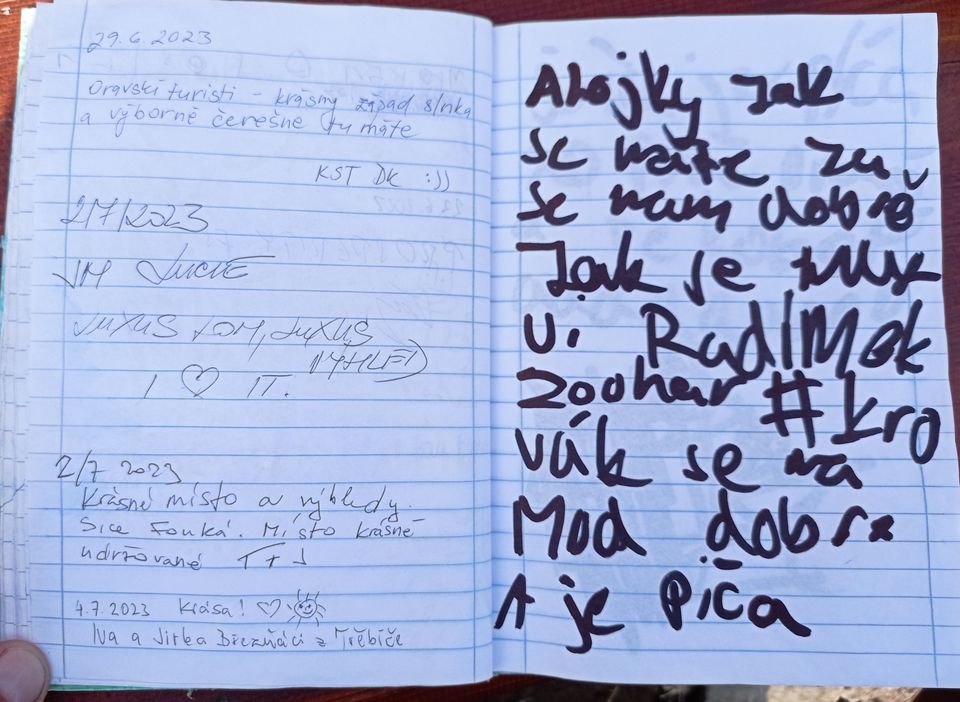 29.6.2023
Oravskí turisti - krásny západ slnka
a výborné čerešne tu máte
KST DK :))
2/7/2023
JM
LUXUS LOM, LUXUS
VÝHLED
I ♡ IT.
2/7 2023
Krásné místo a výhledy.
Sice Fouká. Místo krásně
udržované T+J
4.7.2023 Krása! ♡
Iva a Jirka Březňáci z Třebíče
Ahojky Jak
se máte
se mam dobrě
Jak je
Ui RadIMek
zoohar #kro
vák se
Mod dobrx
A je Piča